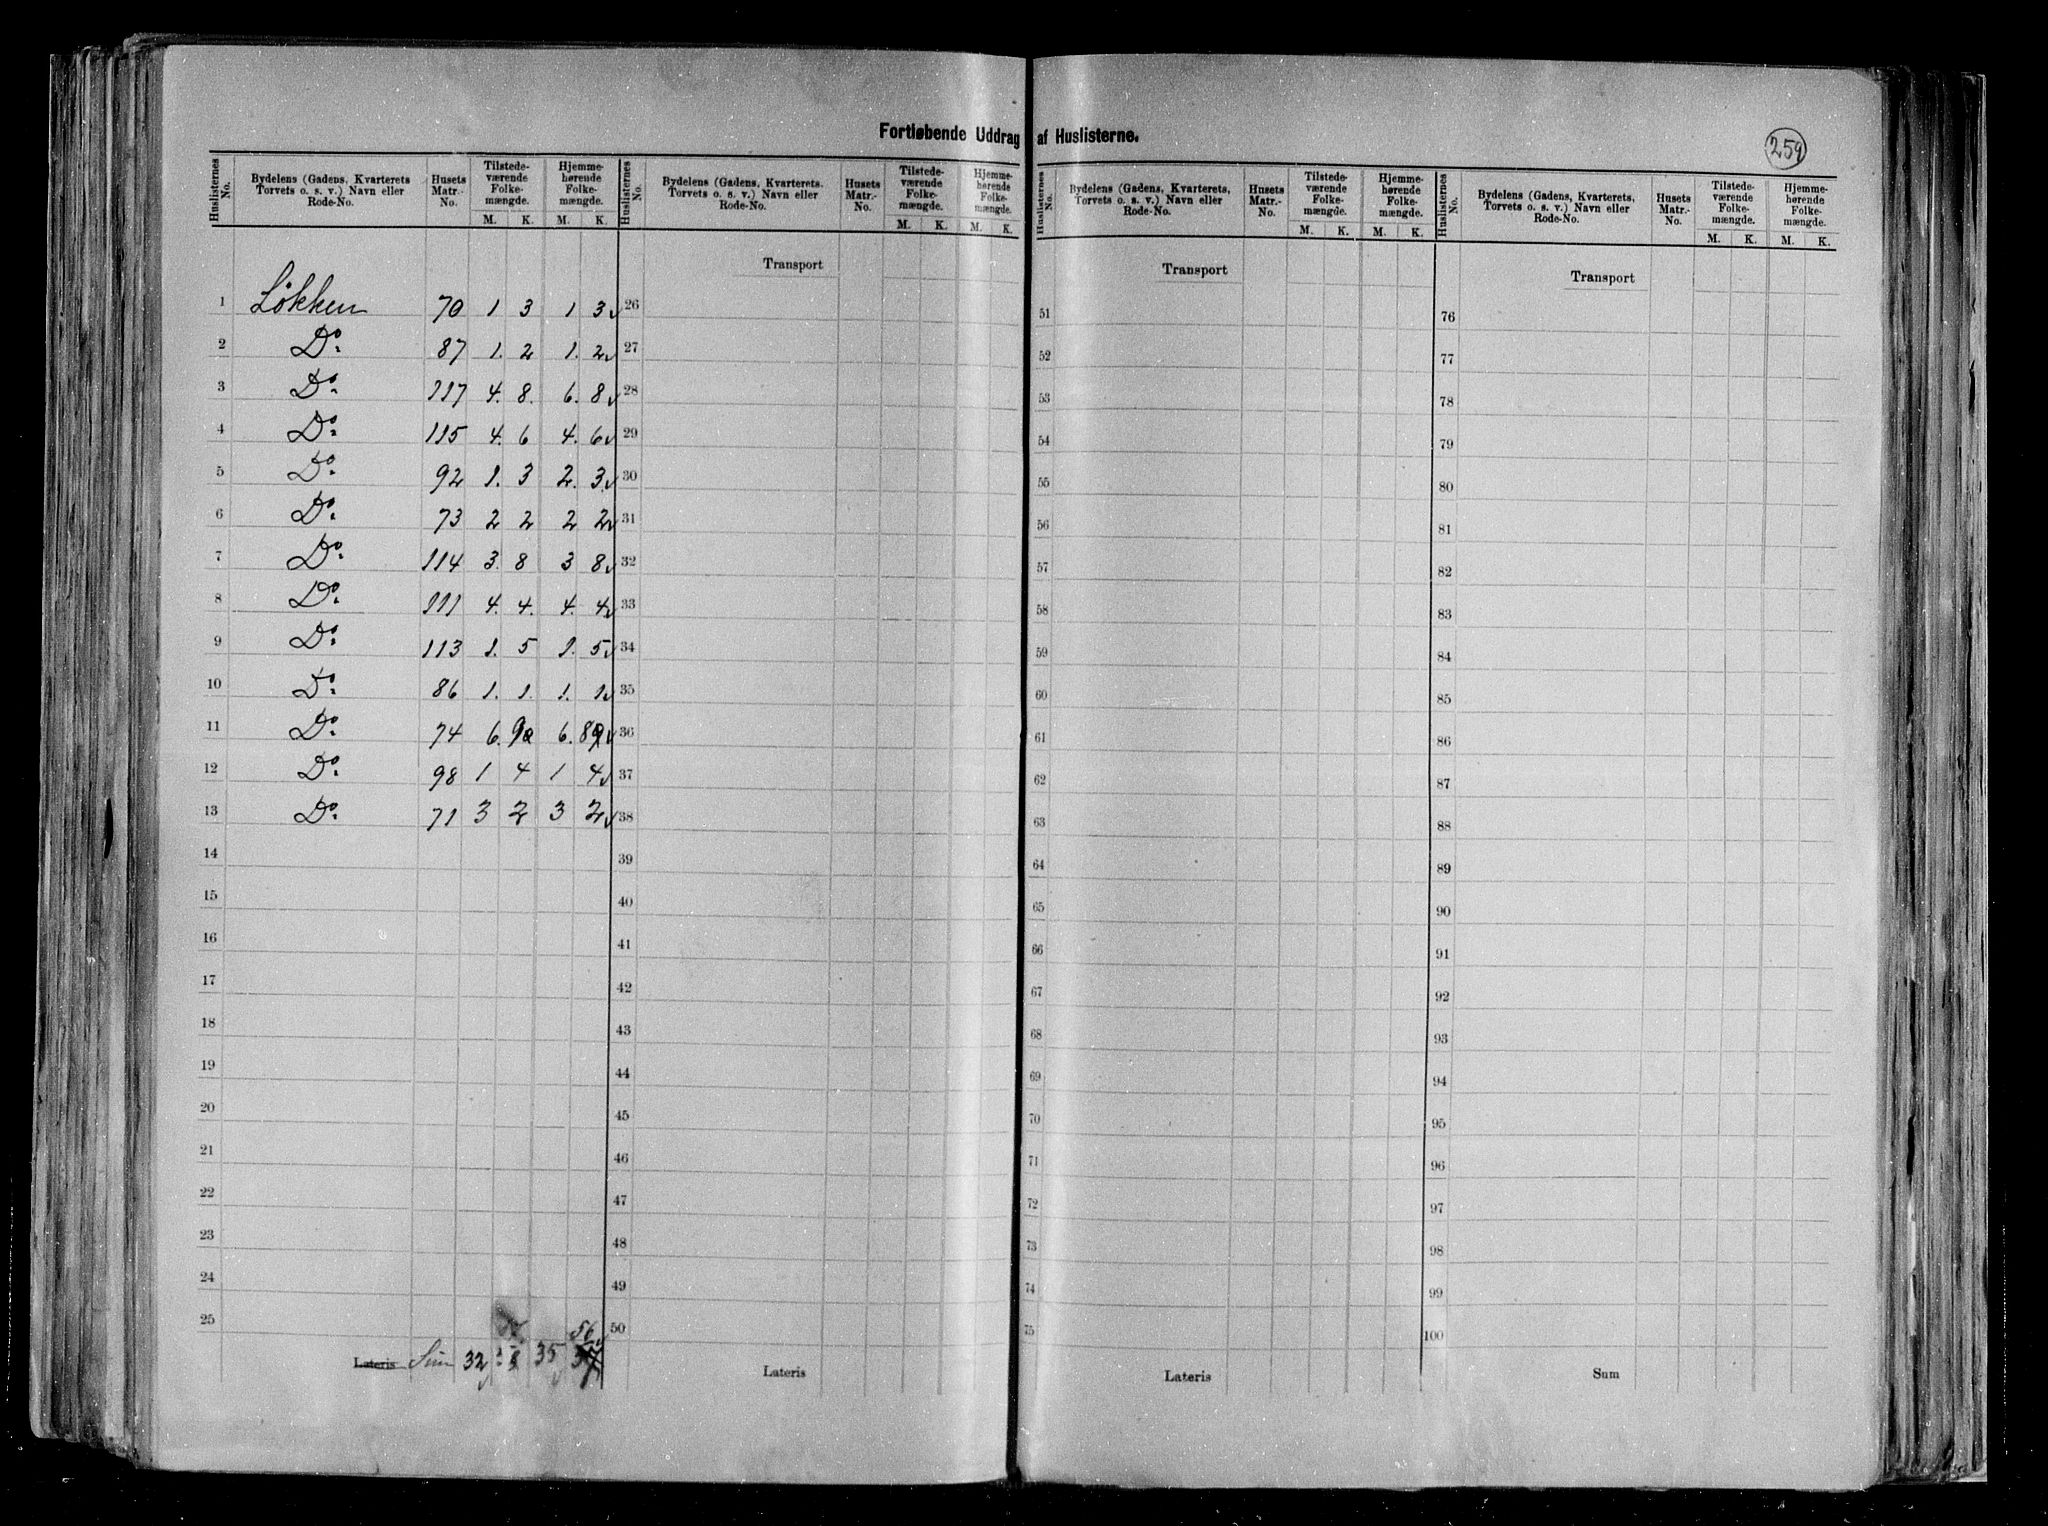 Fortløbende Uddrag af Huslisterne.
259
Huslisternes No. Bydelens (Gadens, Kvarterets Torvets o. s. v.) Navn eller Rode-No. Husets Matr.-No. Tilstede-værende Folke-mængde. M. K. Hjemme-hørende Folke-mængde. M. K.
Huslisternes No. Bydelens (Gadens, Kvarterets, Torvets o. s. v.) Navn eller Rode-No. Husets Matr.-No. Tilstede-værende Folke-mængde. M. K. Hjemme-hørende Folke-mængde. M. K.
Huslisternes No. Bydelens (Gadens, Kvarterets, Torvets o. s. v.) Navn eller Rode-No. Husets Matr.-No. Tilstede-værende Folke-mængde. M. K. Hjemme-hørende Folke-mængde. M. K.
Huslisternes No. Bydelens (Gadens, Kvarterets, Torvets o. s. v.) Navn eller Rode-No. Husets Matr.-No. Tilstede-værende Folke-mængde. M. K. Hjemme-hørende Folke-mængde. M. K.
Transport Transport Transport
1 Løkken 70 1 3 1 3 26 51 76
2 Do. 87 1. 2 1. 2 27 52 77
3 Do. 117 4. 8. 6. 8 28 53 78
4 Do. 115 4. 6 4. 6 29 54 79
5 Do. 92 1. 3 2. 3 30 55 80
6 Do. 73 2 2 2 2 31 56 81
7 Do. 114 3. 8 3 8 32 57 82
8 Do. 111 4. 4. 4. 4 33 58 83
9 Do. 113 1. 5 1. 5 34 59 84
10 Do. 86 1. 1. 1. 1 35 60 85
11 Do. 74 6. 6. 36 61 86
12 Do. 98 1 4 1 4 37 62 87
13 Do. 71 3 2 3 2 38 63 88
14 39 64 89
15 40 65 90
16 41 66 91
17 42 67 92
18 43 68 93
19 44 69 94
20 45 70 95
21 46 71 96
22 47 72 97
23 48 73 98
24 49 74 99
25 50 75 100
56
Lateris Sum 32 35 Lateris Lateris Sum